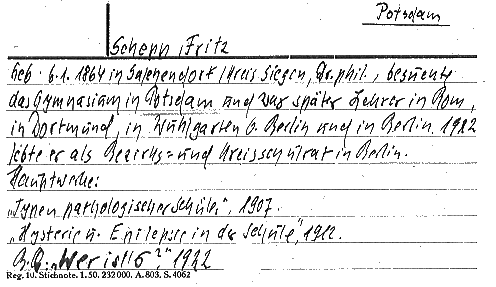 Potsdam
Schepp, Fritz
geb. 6.1. 1864 in Salchendorf/Kreis Siegen, Dr. phil., besuchte
das Gymnasium in Potsdam und war später Lehrer in Bonn,
in Dortmund, in Wuhlgarten b. Berlin und in Berlin. 1922
lebte er als Bezirks- und Kreisschulrat in Berlin.
Hauptwerke:
„Typen pathologischer Schüler“, 1907.
„Hysterie u. Epilepsie in der Schule“, 1912.
„Wer ist's?“, 1922
Reg. 10. Stichnote. 1. 50. 232000. A. 803. S. 4062